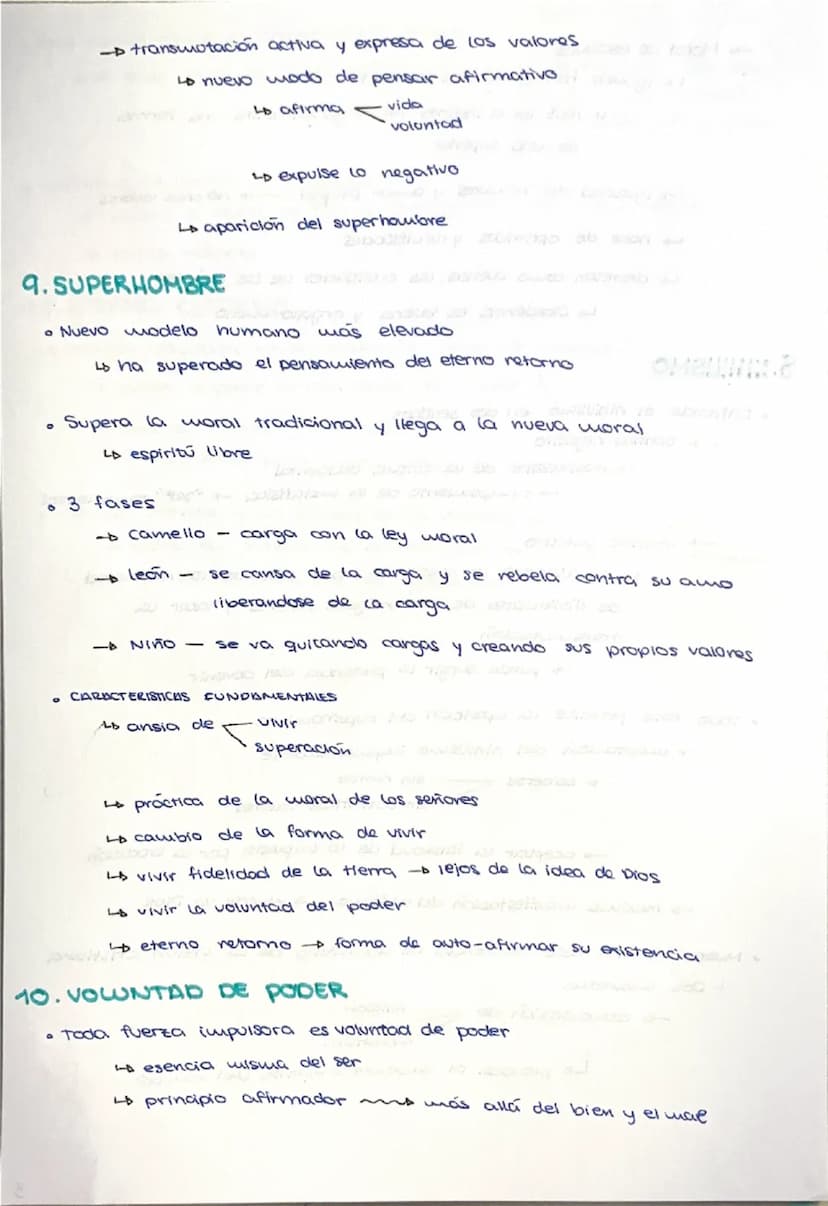 → transmutación activa y expresa de los valores
↳ nuevo modo de pensar afirmativo
↳ afirma vida
voluntad
↳ expulse lo negativo
↳ aparición del superhombre
9. SUPERHOMBRE
• Nuevo modelo humano más elevado
↳ ha superado el pensamiento del eterno retorno
• Supera la moral tradicional y llega a la nueva moral
↳ espiritú libre
• 3 fases
→ Camello - carga con la ley moral
→ león - se cansa de la carga y se rebela contra su amo
liberandose de la carga
→ NIÑO - se va quitando cargas y creando sus propios valores
• CARACTERISTICAS FUNDAMENTALES
↳ ansia de vivir
superación
↳ práctica de la moral de los señores
↳ cambio de la forma de vivir
↳ vivir fidelidad de la tierra → lejos de la idea de Dios
↳ vivir la voluntad del poder
↳ eterno retorno → forma de auto-afirmar su existencia
10. VOLUNTAD DE PODER
• Toda fuerza impulsora es voluntad de poder
↳ esencia misma del ser
↳ principio afirmador → más allá del bien y el mal